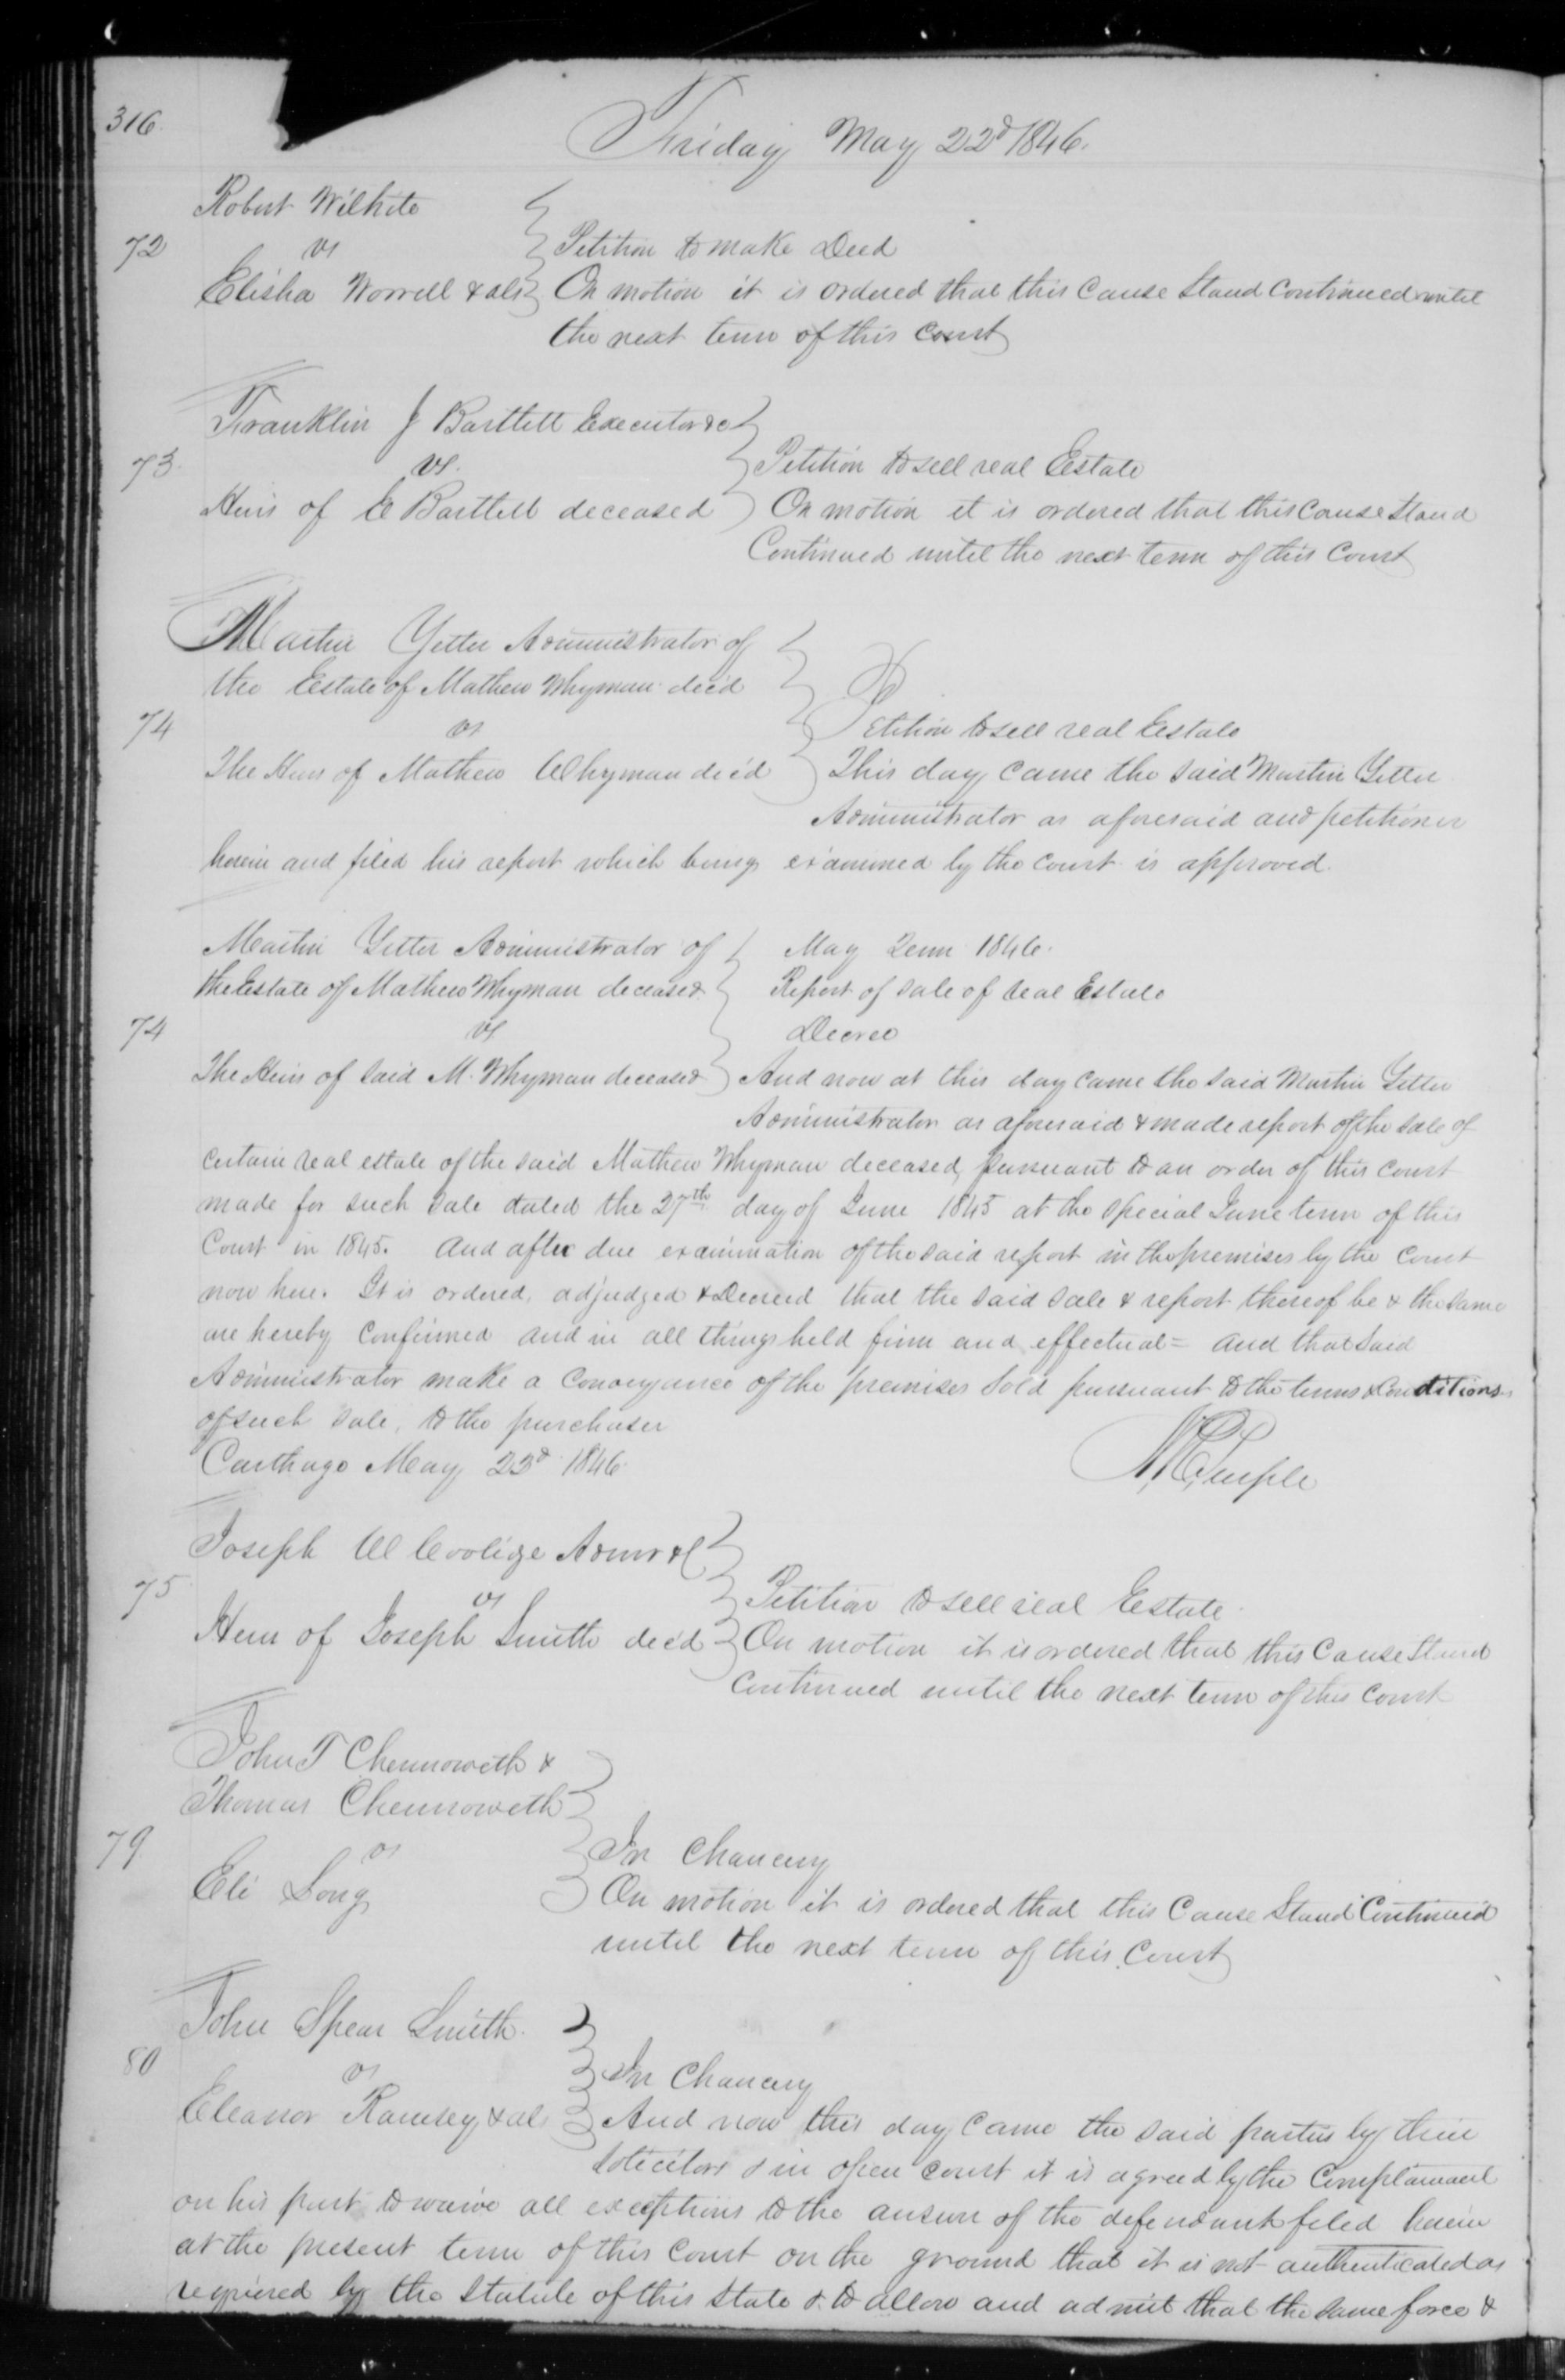 316
Friday May 22d 1846.
Robert Wilhite
72 vs Petition to make Deed
Elisha Worrell & als On motion it is ordered that this Cause Stand Continued until
the next term of this Court
Franklin J Bartlett Executor &c
73. vs. Petition to sell real Eestate
Heirs of E Bartlett deceased On motion it is ordered that this Cause Stand
Continued until the next term of this Court
Martin Yetter Administrator of
the Estate of Mathew Whyman dec'd
74 vs Petition to sell real Eestate
The Heirs of Mathew Whyman dec'd This day came the said Martin Yetter
Administrator as aforesaid and petitioner
herein and filed his report which being examined by the Court is approved.
Martin Yetter Administrator of May Term 1846.
the Estate of Mathew Whyman deceased Report of Sale of real Estate
74 vs Decree
The Heirs of said M. Whyman deceased And now at this day came the said Martin Yetter
Administrator as aforesaid & made report of the sale of
certain real estate of the said Mathew Whyman deceased, pursuant to an order of this Court
made for such Sale dated the 27th day of June 1845 at the Special June term of this
Court in 1845. And after due examination of the said report in the premises by the Court
now here. It is ordered, adjudged & Decreed that the said sale & report thereof be & the same
are hereby Confirmed and in all things held firm and effectual = and that said
Administrator make a Conveyance of the premises Sold pursuant to the terms & Conditions
of such Sale, to the purchaser
Carthage May 22d 1846.
Joseph W Coolige Admr &c
75 vs Petition to sell real Eestate.
Heirs of Joseph Smith dec'd On motion it is ordered that this Cause Stand
Continued until the next term of this Court
John T Chennoweth &
Thomas Chennoweth
79 vs In Chancery
Eli Long On motion it is ordered that this Cause Stand Continued
until the next term of this Court
John Spear Smith.
80 vs In Chancery
Eleanor Ramsey & als And now this day Came the said parties by their
Solicitors & in open Court it is agreed by the Complainant
on his part to waive all exceptions to the answer of the defendant filed herein
at the present term of this Court on the ground that it is not authenticated as
required by the Statute of this State & to allow and admit that the same force &